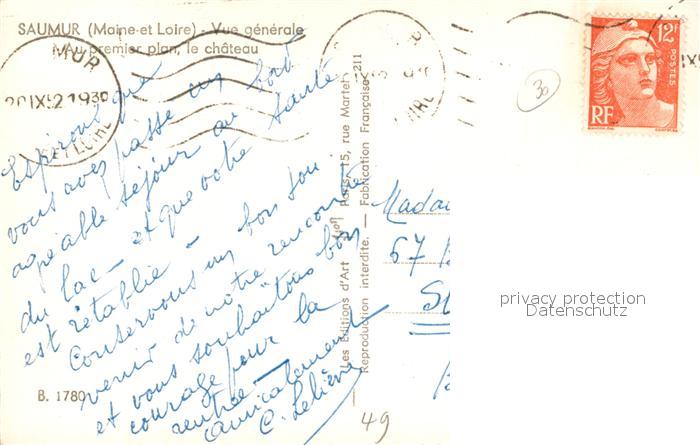 SAUMUR (Maine-et Loire) - Vue générale
Au premier plan, le château
MUR
1930
LOIRE
Espérons que
vous avez passé un fort
agréable séjour au
du lac - et que votre santé
est rétablie -
Conservons un bon sou-
venir de notre rencontre
et vous souhaitons bon
courage pour la
rentrée -
Amicalement
C. Lelièvre
B. 1780
Les Editions d'Art
Paris, 15, rue Martel
211
Reproduction interdite. — Fabrication Française
30
12F
POSTES
RF
Mada
67
S
49
privacy protection
Datenschutz